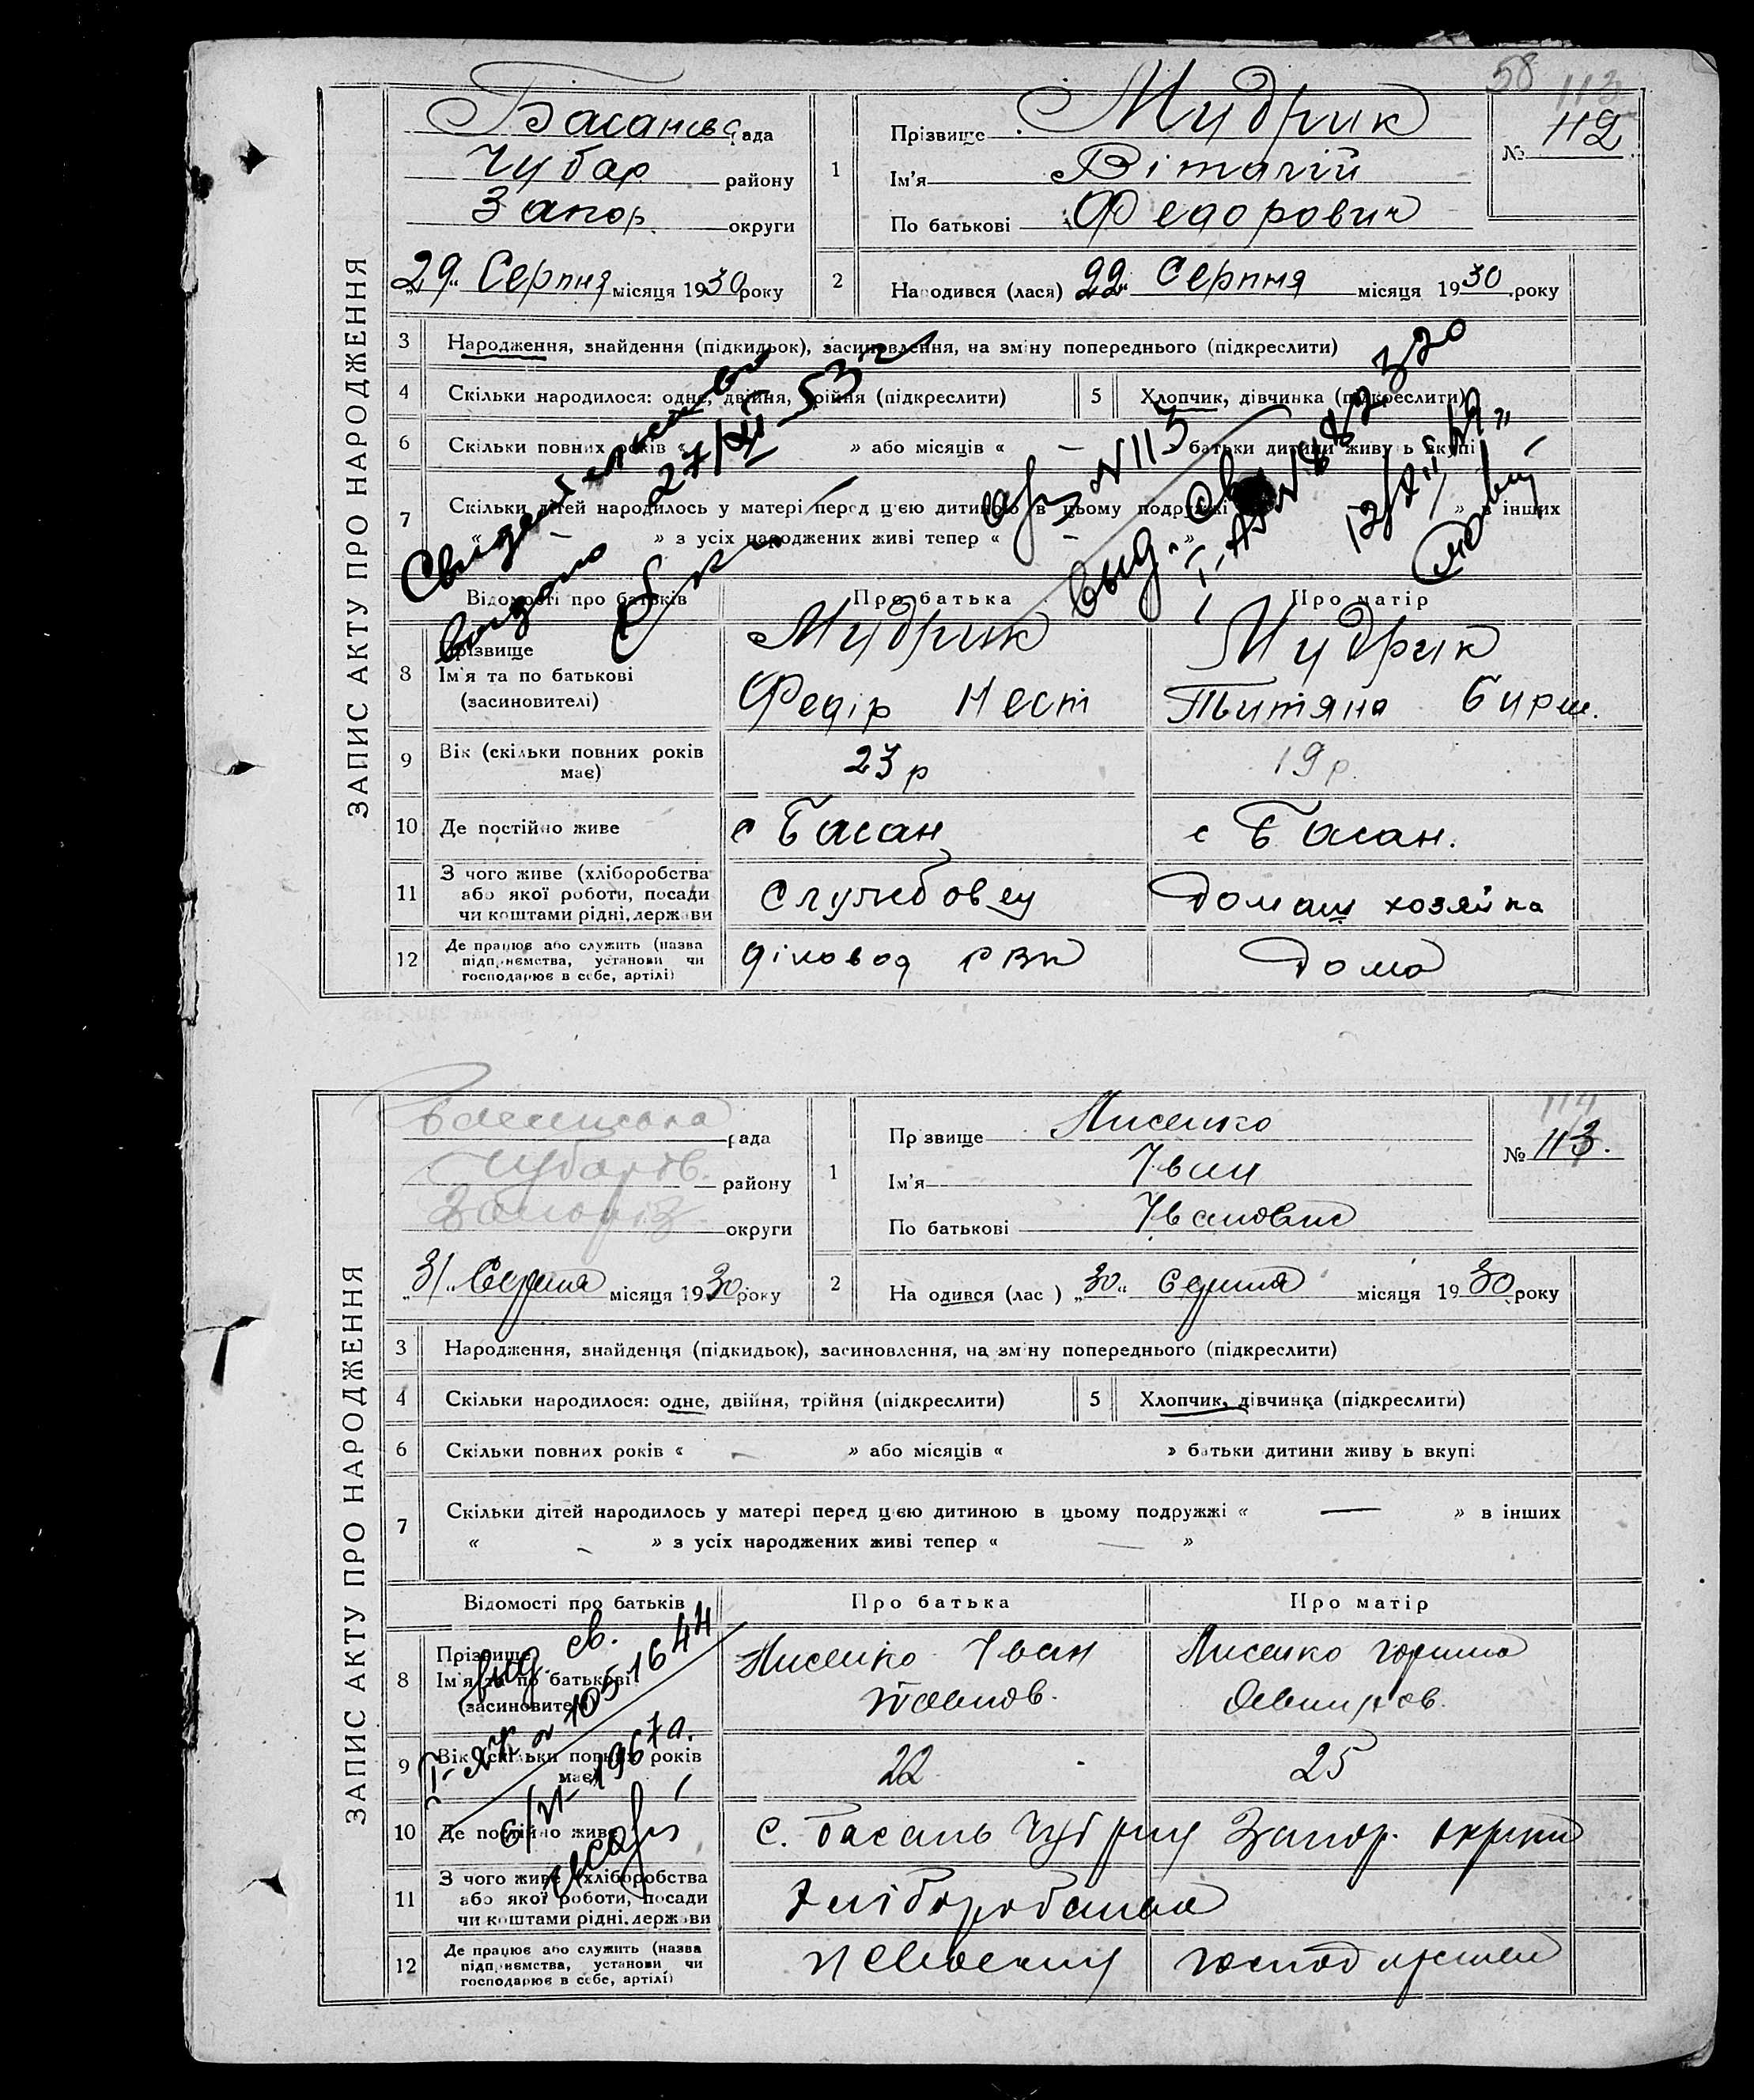 58 113
ЗАПИС АКТУ ПРО НАРОДЖЕННЯ
Басансь рада
Чубар району
Запор. округи
"29" Серпня місяця 1930 року
1
Прізвище Мудрик
Ім'я Віталій
По батькові Федорович
№ 112
2
Народився (лася) "22" Серпня місяця 1930 року
3 Народження, знайдення (підкидьок), засиновлення, на зміну попереднього (підкреслити)
4 Скільки народилося: одне, двійня, трійня (підкреслити) 5 Хлопчик, дівчинка (підкреслити)
6 Скільки повних років « » або місяців « – » батьки дитини живуть вкупі
7 Скільки дітей народилось у матері перед цією дитиною в цьому подружжі « » в інших
« – » з усіх народжених живі тепер « – »
Свидетельство
выдано 27/XI-53 г
№113
выд. св.
Відомості про батьків Про батька Про матір
8 Прізвище
Ім'я та по батькові
(засиновителі)
Мудрик
Федір Нест
Мудрик
Тытяна
9 Вік (скільки повних років
має)
23 р
19 р.
10 Де постійно живе
с Басан
с Басан.
11 З чого живе (хліборобства
або якої роботи, посади
чи коштами рідні, держави
Службовец
Домаш хозяйка
12 Де працює або служить (назва
підприємства, установи чи
господарює в себе, артілі)
діловод РВК
Дома
ЗАПИС АКТУ ПРО НАРОДЖЕННЯ
Басанська рада
Чубарів. району
Запоріз округи
"31" Серпня місяця 1930 року
1
Прізвище Лисенко
Ім'я Іван
По батькові Іванович
114
№ 113.
2
Народився (лас ) "30" Серпня місяця 1930 року
3 Народження, знайдення (підкидьок), засиновлення, на зміну попереднього (підкреслити)
4 Скільки народилося: одне, двійня, трійня (підкреслити) 5 Хлопчик, дівчинка (підкреслити)
6 Скільки повних років « – » або місяців « » батьки дитини живуть вкупі
7 Скільки дітей народилось у матері перед цією дитиною в цьому подружжі « — » в інших
« – » з усіх народжених живі тепер « — »
Відомості про батьків Про батька Про матір
8 Прізвище
Ім'я та по батькові
(засновителі)
выд. св.
I-АЖ № 1051644
6/VI-1967 г.
Лисенко Іван
Павлов.
Лисенко Горпина
9 Вік (скільки повних років
має)
22
25
10 Де постійно живе
с. Басань Чуб р-ну Запор. округи
11 З чого живе (хліборобства
або якої роботи, посади
чи коштами рідні, держави
Хліборобства
12 Де працює або служить (назва
підприємства, установи чи
господарює в себе, артілі)